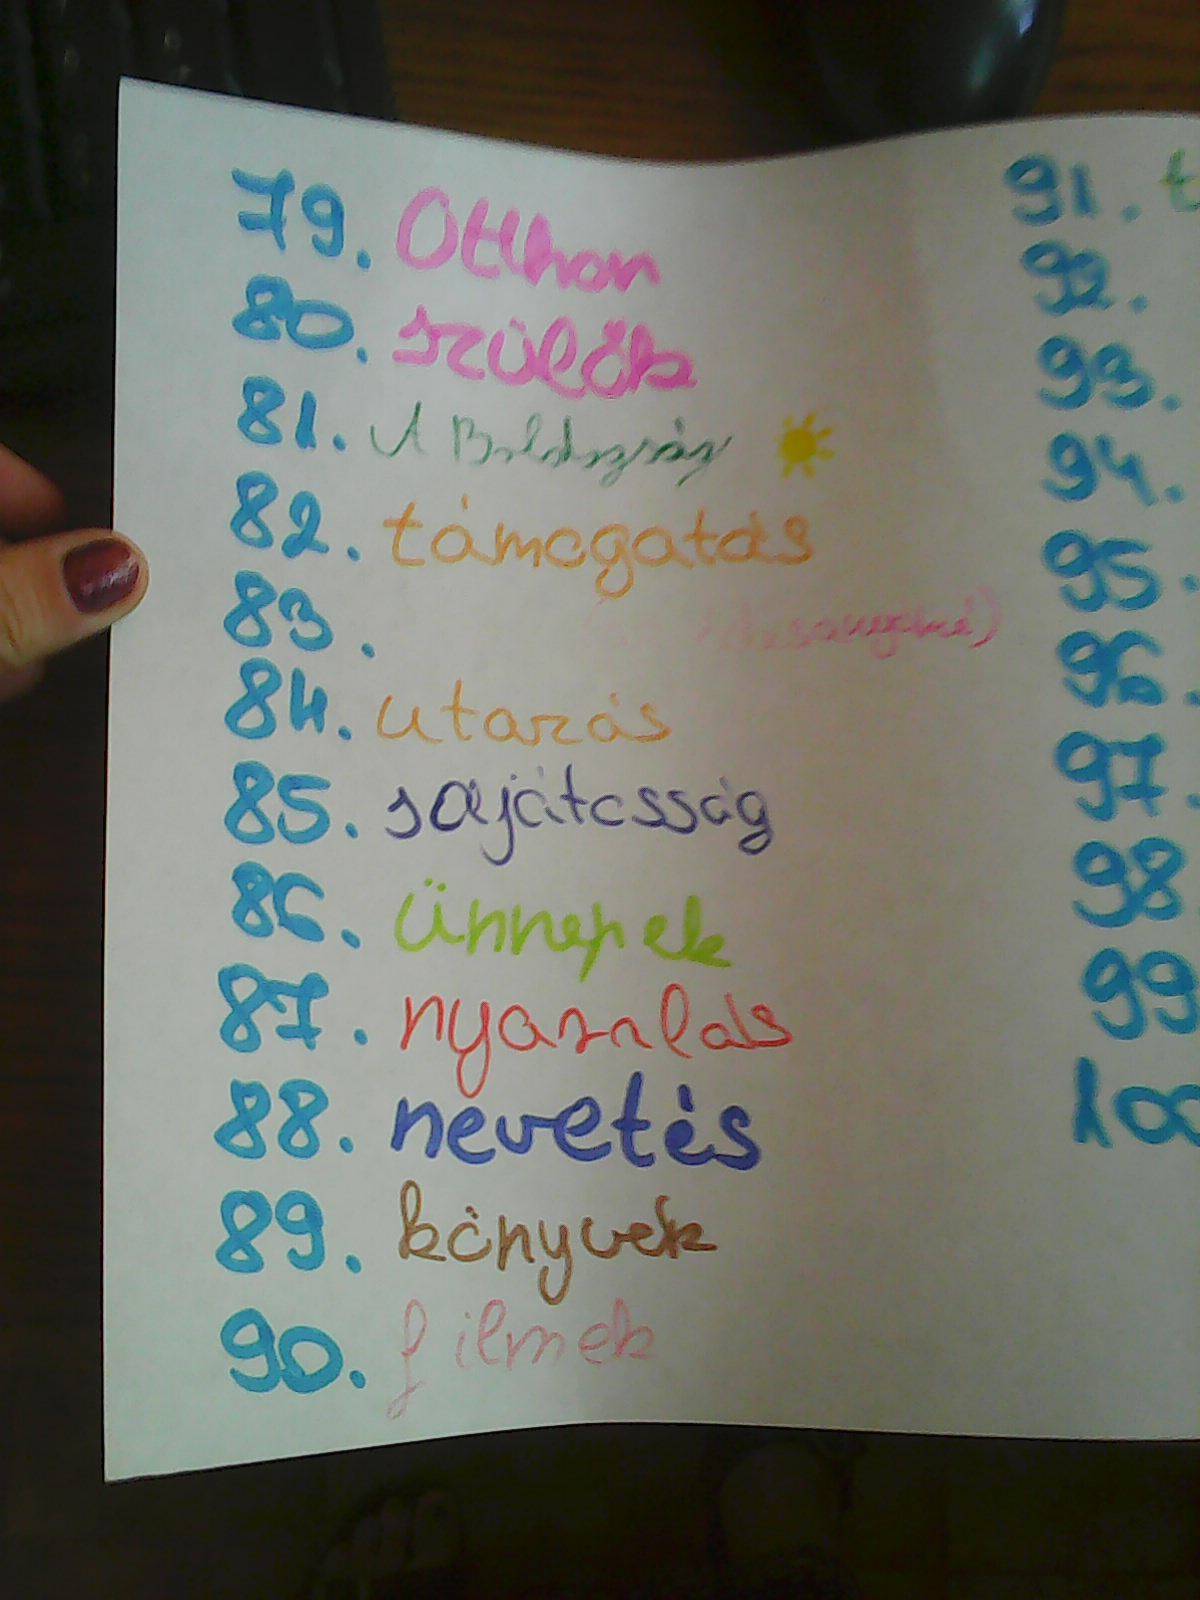 79. Otthon
80. szülők
81. A Boldogság
82. támogatás
83.
84. utazás
85. sajátosság
86. ünnepek
87. nyaralás
88. nevetés
89. könyvek
90. filmek
91. t
92.
93.
94.
95.
96.
97.
98
99
100